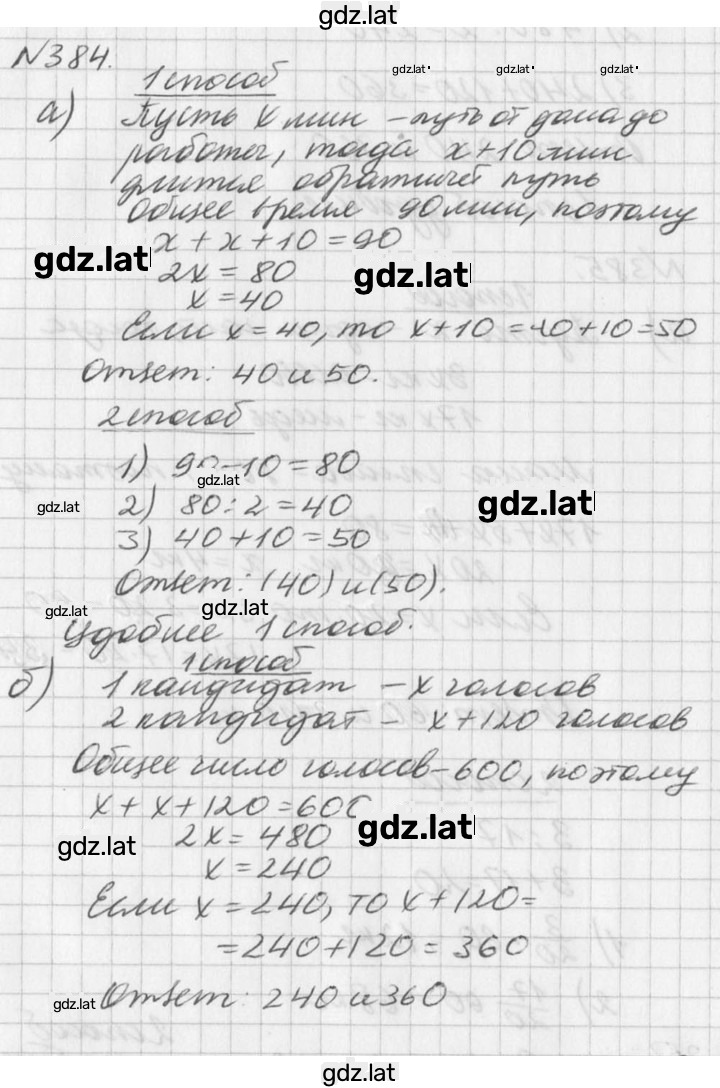 gdz.lat
N384.
gdz.lat gdz.lat gdz.lat
1 способ
а) Пусть x мин – путь от дома до
работы, тогда x+10 мин
длится обратный путь
Общее время 90 мин, поэтому
x + x + 10 = 90
gdz.lat
2x = 80
gdz.lat
x = 40
Если x = 40, то x+10 = 40+10 = 50
Ответ: 40 и 50.
2 способ
1) 90-10 = 80
gdz.lat
2) 80:2 = 40
gdz.lat gdz.lat
3) 40+10 = 50
Ответ: (40) и (50).
gdz.lat gdz.lat
Удобнее 1 способ.
1 способ
б) 1 кандидат – x голосов
2 кандидат – x+120 голосов
Общее число голосов – 600, поэтому
x + x + 120 = 600
2x = 480
gdz.lat gdz.lat
x = 240
Если x = 240, то x+120 =
= 240+120 = 360
gdz.lat Ответ: 240 и 360
gdz.lat